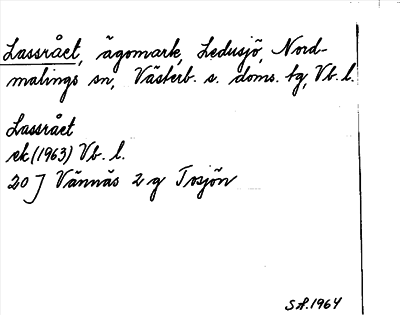 Lassrået, ägomark, Ledusjö, Nord-
malings sn, Västerb. s. doms. tg, Vb. l.
Lassrået
ek (1963) Vb. l.
20 J Vännäs 2 g Tosjön
S.A. 1964